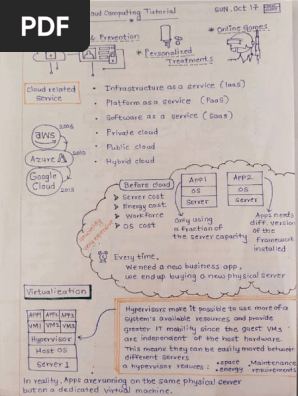 PDF
Cloud Computing Tutorial
SUN, Oct 17
& Prevention
* Online Games
* Personalized
Treatments
Cloud related
Service
• Infrastructure as a service (IaaS)
• Platform as a service (PaaS)
• Software as a service (SaaS)
• Private cloud
• Public cloud
• Hybrid cloud
AWS
2006
Azure
2010
Google
Cloud
2013
Before cloud
App1
OS
Server
App2
OS
Server
Server cost
Energy cost
Workforce
OS cost
Only using
a fraction of
the server capacity
Apps need
diff. version
of the
framework
installed
Every time,
We need a new business app,
we end up buying a new physical server
Virtualization
APP1 APP2 APP3
VM1 VM2 VM3
Hypervisor
Host OS
Server 1
Hypervisors make it possible to use more of a
system's available resources, and provide
greater IT mobility since the guest VMs
are independent of the host hardware.
This means they can be easily moved between
different servers
a hypervisor reduces: •space •energy Maintenance
requirements
In reality, Apps are running on the same physical server
but on a dedicated virtual machine.